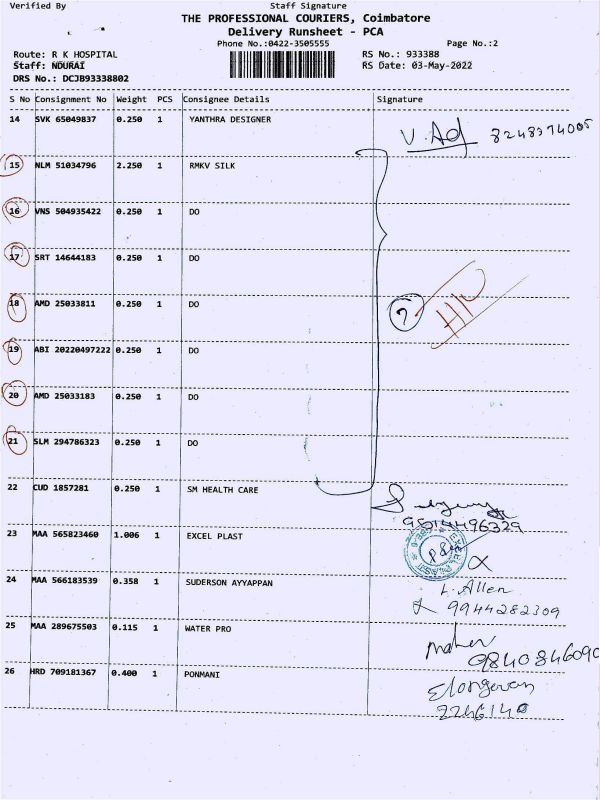 Verified By Staff Signature
THE PROFESSIONAL COURIERS, Coimbatore
Delivery Runsheet - PCA
Phone No.:0422-3505555 Page No.:2
Route: R K HOSPITAL RS No.: 933388
Staff: NDURAI RS Date: 03-May-2022
DRS No.: DCJB93338802
S No Consignment No Weight PCS Consignee Details Signature
14 SVK 65049837 0.250 1 YANTHRA DESIGNER
V. Ad 8248974005
15 NLM 51034796 2.250 1 RMKV SILK
16 VNS 504935422 0.250 1 DO
17 SRT 14644183 0.250 1 DO
18 AMD 25033811 0.250 1 DO
7
19 ABI 20220497222 0.250 1 DO
20 AMD 25033183 0.250 1 DO
21 SLM 294786323 0.250 1 DO
22 CUD 1857281 0.250 1 SM HEALTH CARE
9514496329
23 MAA 565823460 1.006 1 EXCEL PLAST
24 MAA 566183539 0.358 1 SUDERSON AYYAPPAN
L. Allen
9944282309
25 MAA 289675503 0.115 1 WATER PRO
9840846090
26 HRD 709181367 0.400 1 PONMANI
Elangovan
2246140